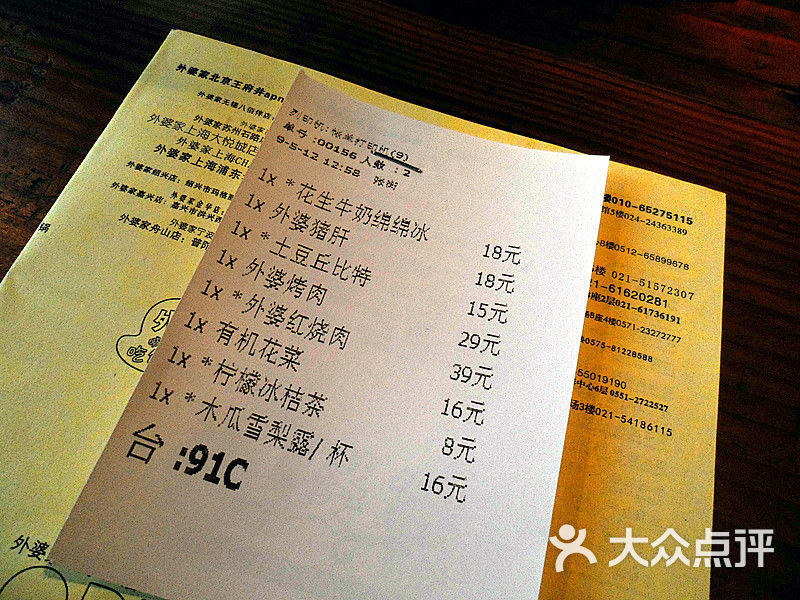 外婆家北京王府井apm
外婆家无锡八佰伴店
外婆家苏州石路
外婆家上海大悦城店
外婆家上海CH
外婆家上海浦东
外婆家绍兴店:绍兴市
外婆家嘉兴店:嘉兴市
外婆家宁波
外婆家舟山店:普陀
锅
列印机:帐单打印机(9)
单号:00156 人数:2
9-5-12 12:58
1x *花生牛奶绵绵冰 18元
1x 外婆猪肝 18元
1x *土豆丘比特 15元
1x 外婆烤肉 29元
1x *外婆红烧肉 39元
1x 有机花菜 16元
1x *柠檬冰桔茶 8元
1x *木瓜雪梨露/杯 16元
台:91C
楼010-65275115
5楼024-24363389
8楼0512-65899678
楼 021-51572307
21-61620281
座2层021-61736191
8座4楼0571-23272777
0575-81228588
55019190
中心6层 0551-2722527
场3楼021-54186115
外婆
大众点评